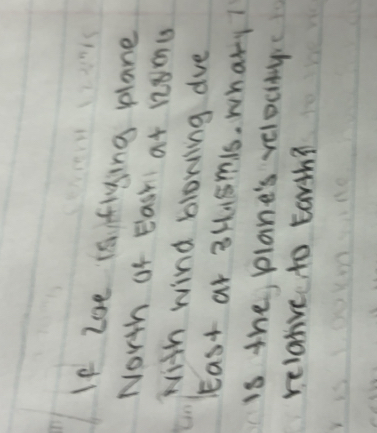 If Zoe is flying plane
North of East at 128m/s
With wind blowing due
East at 34.5m/s. what
is the plane's velocity
relative to Earth?